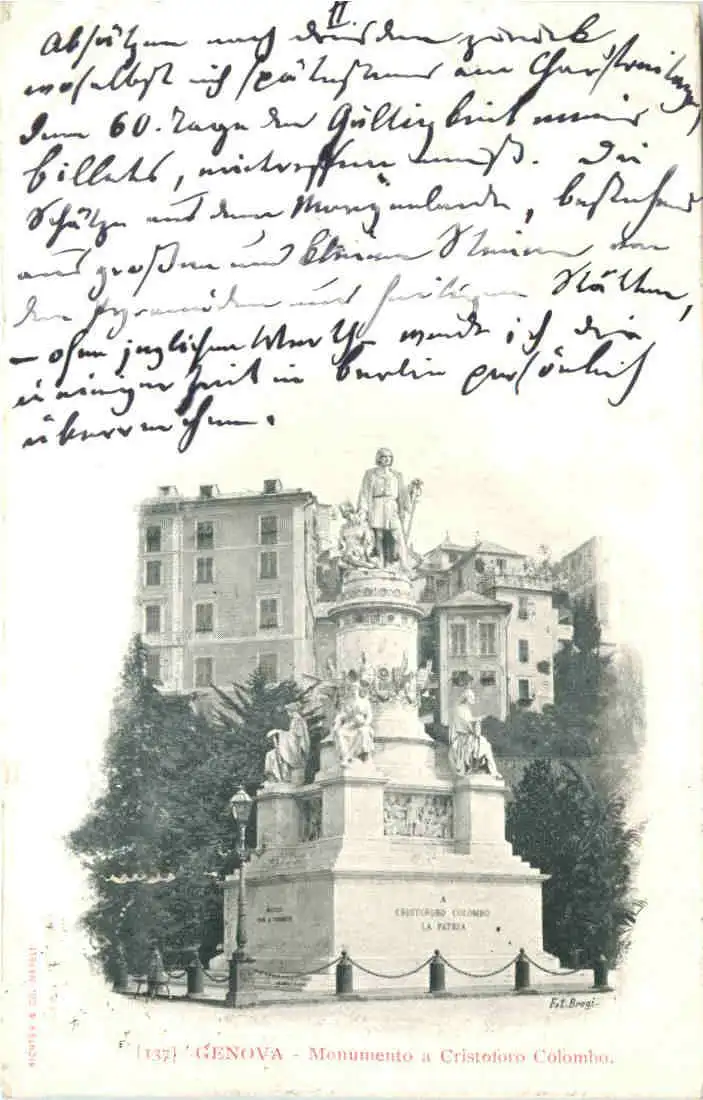 II
Absätzen nach Dresden zurück
woselbst ich spätestens am Charfreitag,
dem 60. Tage der Gültigkeit meines
billets, eintreffen muß. Die
Schätze aus dem Morgenlande, bestehend
aus großen und kleinen Steinen von
den Pyramiden und heiligen Stätten,
– ohne jeglichen Werth werde ich dir
in einiger Zeit in Berlin persönlich
überreichen.
A
CRISTOFORO COLOMBO
LA PATRIA
Fot. Brogi.
RICHTER & CO, NAPOLI
(137) GENOVA - Monumento a Cristoforo Colombo.